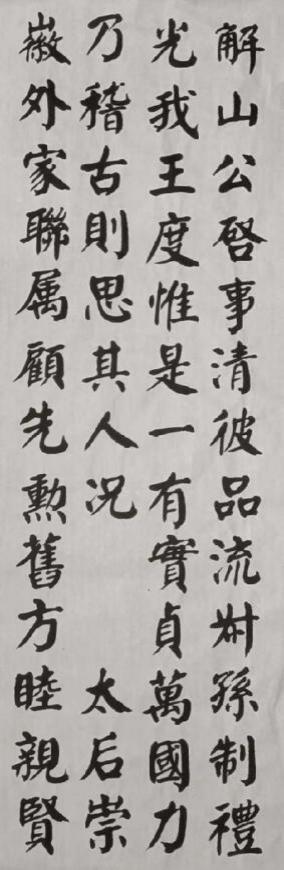 解山公啓事清彼品流叔孫制禮
光我王度惟是一有實貞萬國力
乃稽古則思其人況 太后崇
徽外家聯属顧先勲舊方睦親賢